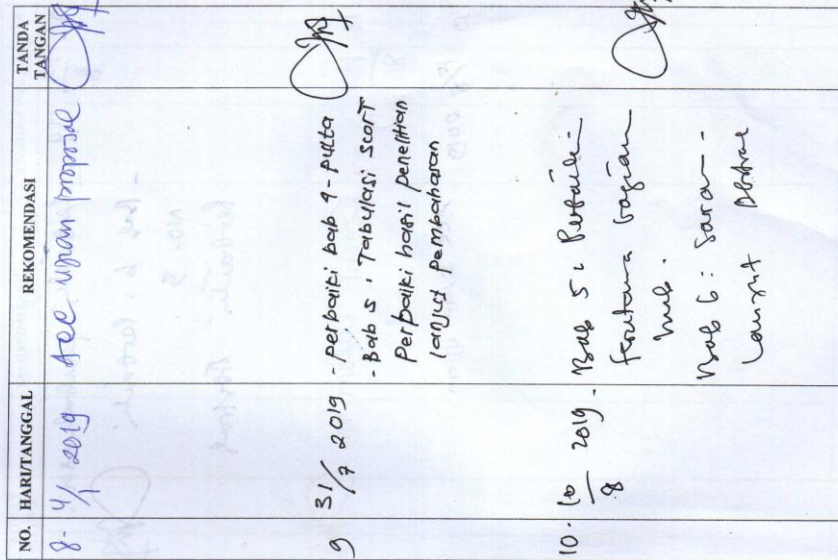 NO. HARI/TANGGAL REKOMENDASI TANDA TANGAN
8. 4/1 2019 Acc ujian proposal
9 31/7 2019 - perbaiki bab 4 -
- Bab 5 : Tabulasi
Perbaiki hasil penelitian
lanjut pembahasan
10. 10/8 2019 - Bab 5 : Perbaiki
terutama bagian
Bab 6 : Saran -
Lanjut